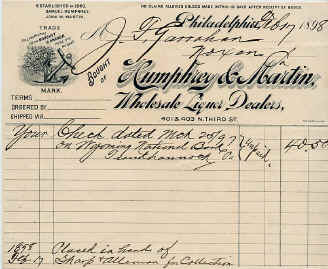 ESTABLISHED IN 1860.
SAMUEL HUMPHREY,
JOHN W. MARTIN.
NO CLAIMS ALLOWED UNLESS MADE WITHIN 10 DAYS AFTER RECEIPT OF GOODS.
TRADE
MARK.
Philadelphia, Feby 17 1898
J. F.
Noxen Pa
BOUGHT OF
Humphrey & Martin,
Wholesale Liquor Dealers,
401 & 403 N. THIRD ST.
TERMS
ORDERED BY
SHIPPED VIA
Your Check dated Mch 25/97
on Wyoming National Bank
Tunkhannock Pa
40.50
1898
Feb 17 Placed in hands of
Sharp & Alleman for Collection